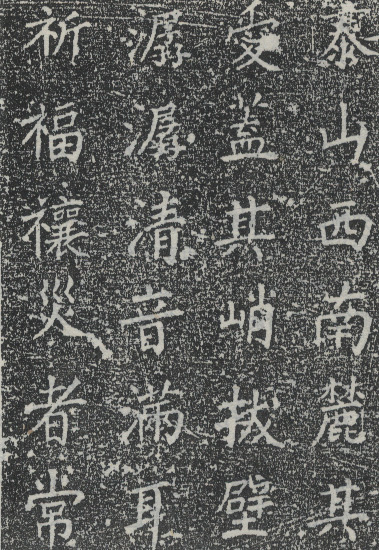 泰山西南麓其
蓋其峭拔壁
潺潺清音滿耳
祈福禳災者常